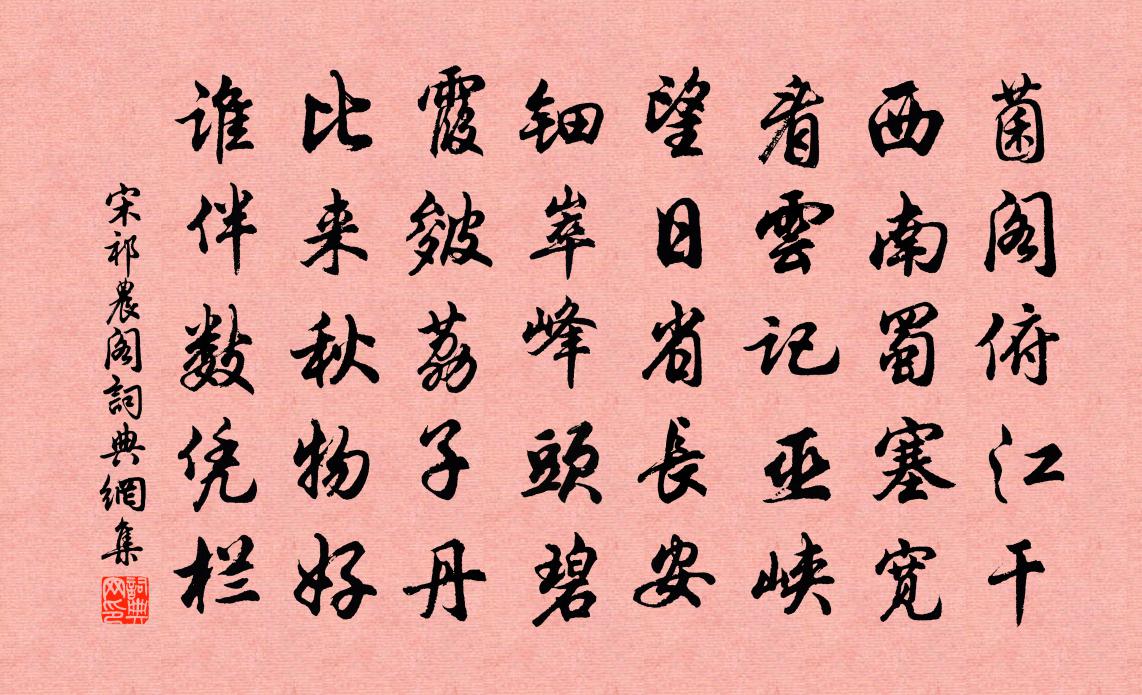 菌阁俯江干
西南蜀塞寬
看雲记巫峡
望日省長安
钿崒峰頭碧
霞皴荔子丹
比来秋物好
谁伴数凭栏
宋祁農阁詞典網集
詞典网印